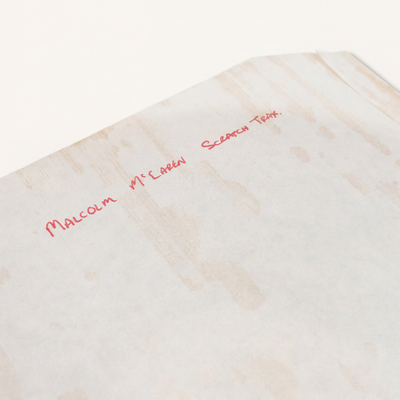 Malcolm McLaren Scratch Trax.